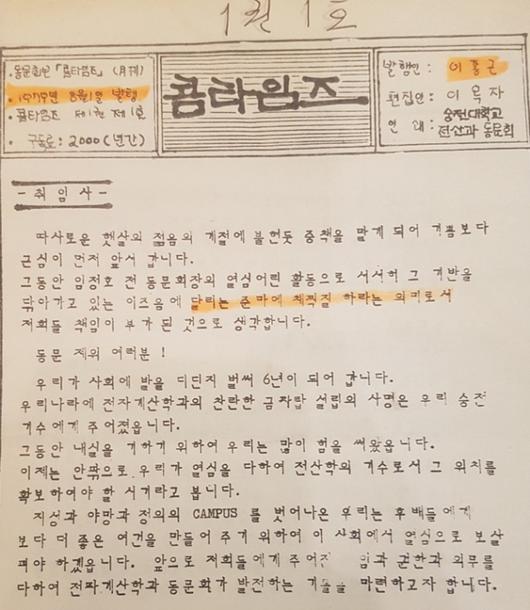 1권 1호
· 동문회보 「콤타임즈」 (월간)
· 1979년 8월 1일 발행
· 콤타임즈 제1권 제1호
· 구독료 : 2000 (년간)
콤타임즈
발행인 : 이흥근
편집인 : 이옥자
연 락 : 숭전대학교
전산과 동문회
- 취 임 사 -
따사로운 햇살의 젊음의 계절에 불현듯 중책을 맡게 되어 기쁨보다
근심이 먼저 앞서 갑니다.
그동안 임정호 전 동문회장의 열심어린 활동으로 서서히 그 기반을
닦아가고 있는 이즈음에 달리는 준마에 채찍질 하라는 의미로서
저희들 책임이 부가 된 것으로 생각합니다.
동문 제위 여러분 !
우리가 사회에 발을 디딘지 벌써 6년이 되어 갑니다.
우리나라에 전자계산학과의 찬란한 금자탑 설립의 사명은 우리 숭전
기수에게 주어졌읍니다.
그동안 내실을 기하기 위하여 우리는 많이 힘을 써왔읍니다.
이제는 안팎으로 우리가 열심을 다하여 전산학의 기수로서 그 위치를
확보하여야 할 시기라고 봅니다.
지성과 야망과 정의의 CAMPUS 를 벗어나온 우리는 후배들에게
보다 더 좋은 여건을 만들어 주기 위하여 이 사회에서 열심으로 보살
펴야 하겠읍니다. 앞으로 저희들에게 주어진 임과 권한과 의무를
다하여 전자계산학과 동문회가 발전하는 기틀을 마련하고자 합니다.